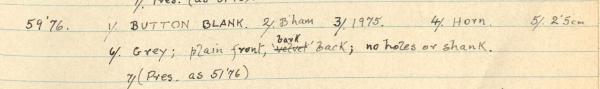 7/ (Pres. as 51'76)
59'76. 1/ BUTTON BLANK. 2/ B'ham 3/ 1975. 4/ Horn. 5/ 2'5cm
bark
6/ Grey; plain front, 'velvet' back; no holes or shank.
7/ (Pres. as 51'76)